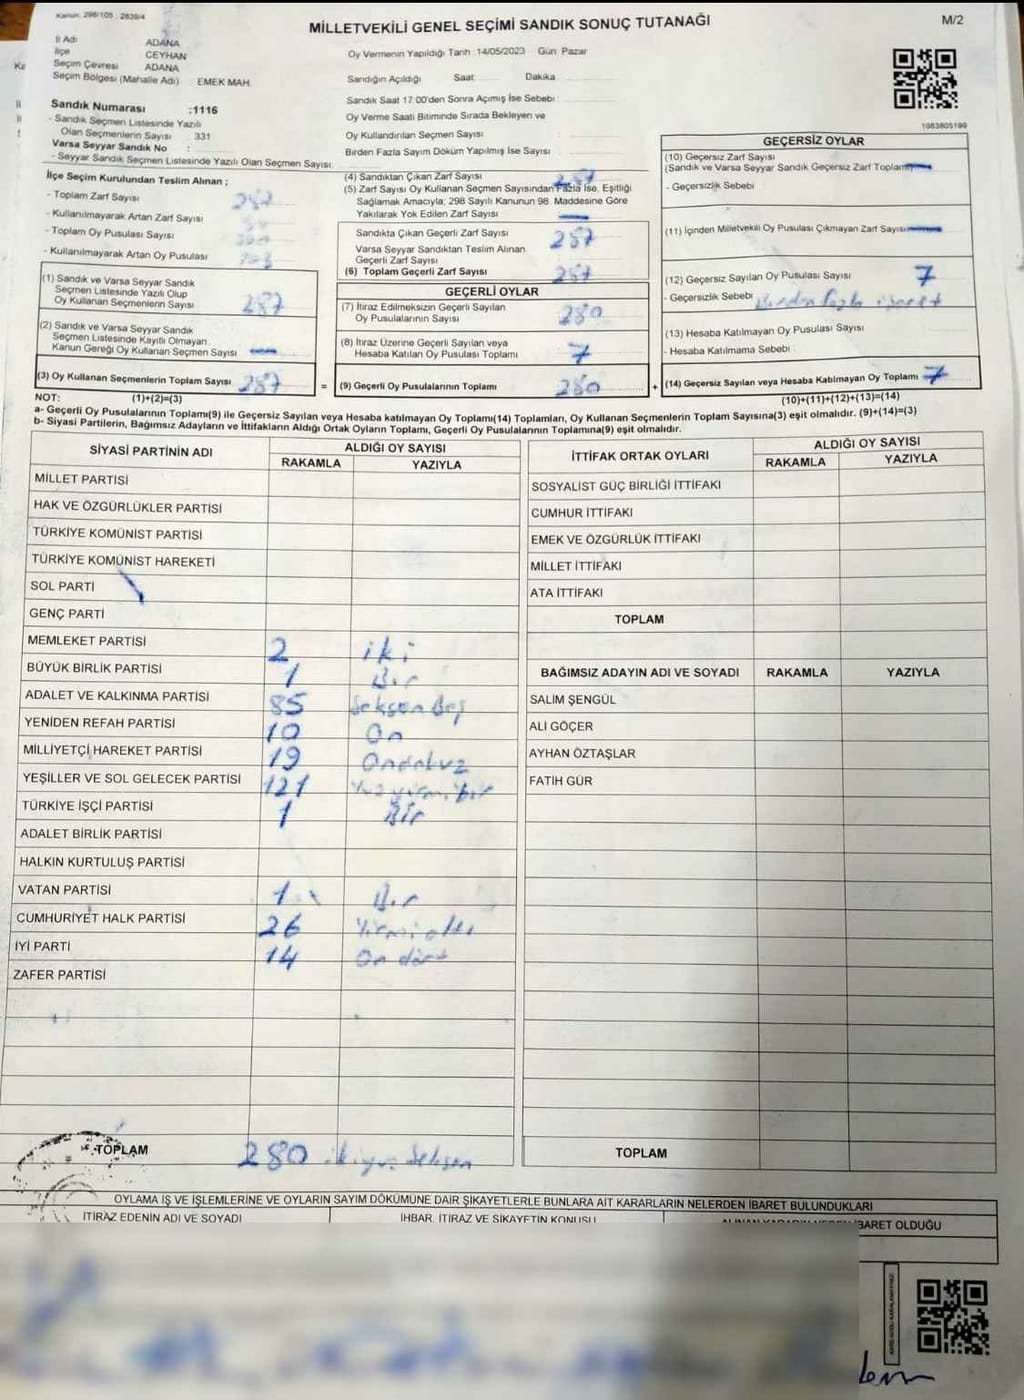 Kanun: 298/105 : 2839/4
MİLLETVEKİLİ GENEL SEÇİMİ SANDIK SONUÇ TUTANAĞI
M/2
İl Adı ADANA
İlçe CEYHAN
Seçim Çevresi ADANA
Seçim Bölgesi (Mahalle Adı) EMEK MAH.
Sandık Numarası :1116
- Sandık Seçmen Listesinde Yazılı
Olan Seçmenlerin Sayısı 331
Varsa Seyyar Sandık No :
- Seyyar Sandık Seçmen Listesinde Yazılı Olan Seçmen Sayısı:
Oy Vermenin Yapıldığı Tarih : 14/05/2023 Gün: Pazar
Sandığın Açıldığı Saat Dakika
Sandık Saat 17:00'den Sonra Açımış İse Sebebi
Oy Verme Saati Bitiminde Sırada Bekleyen ve
Oy Kullandırılan Seçmen Sayısı
Birden Fazla Sayım Döküm Yapılmış İse Sayısı
1083805199
İlçe Seçim Kurulundan Teslim Alınan ;
- Toplam Zarf Sayısı
- Kullanılmayarak Artan Zarf Sayısı
- Toplam Oy Pusulası Sayısı
- Kullanılmayarak Artan Oy Pusulası
(1) Sandık ve Varsa Seyyar Sandık
Seçmen Listesinde Yazılı Olup
Oy Kullanan Seçmenlerin Sayısı 287
(2) Sandık ve Varsa Seyyar Sandık
Seçmen Listesinde Kayıtlı Olmayan
Kanun Gereği Oy Kullanan Seçmen Sayısı
(3) Oy Kullanan Seçmenlerin Toplam Sayısı 287
(4) Sandıktan Çıkan Zarf Sayısı 287
(5) Zarf Sayısı Oy Kullanan Seçmen Sayısından Fazla İse, Eşitliği
Sağlamak Amacıyla; 298 Sayılı Kanunun 98. Maddesine Göre
Yakılarak Yok Edilen Zarf Sayısı
Sandıkta Çıkan Geçerli Zarf Sayısı 287
Varsa Seyyar Sandıktan Teslim Alınan
Geçerli Zarf Sayısı
(6) Toplam Geçerli Zarf Sayısı 287
GEÇERLİ OYLAR
(7) İtiraz Edilmeksizin Geçerli Sayılan
Oy Pusulalarının Sayısı 280
(8) İtiraz Üzerine Geçerli Sayılan veya
Hesaba Katılan Oy Pusulası Toplamı 7
= (9) Geçerli Oy Pusulalarının Toplamı 280
GEÇERSİZ OYLAR
(10) Geçersiz Zarf Sayısı
(Sandık ve Varsa Seyyar Sandık Geçersiz Zarf Toplamı)
- Geçersizlik Sebebi
(11) İçinden Milletvekili Oy Pusulası Çıkmayan Zarf Sayısı
(12) Geçersiz Sayılan Oy Pusulası Sayısı 7
- Geçersizlik Sebebi Birden fazla işaret
(13) Hesaba Katılmayan Oy Pusulası Sayısı
- Hesaba Katılmama Sebebi
+ (14) Geçersiz Sayılan veya Hesaba Katılmayan Oy Toplamı 7
NOT: (1)+(2)=(3)
(10)+(11)+(12)+(13)=(14)
a- Geçerli Oy Pusulalarının Toplamı(9) ile Geçersiz Sayılan veya Hesaba katılmayan Oy Toplamı(14) Toplamları, Oy Kullanan Seçmenlerin Toplam Sayısına(3) eşit olmalıdır. (9)+(14)=(3)
b- Siyasi Partilerin, Bağımsız Adayların ve İttifakların Aldığı Ortak Oyların Toplamı, Geçerli Oy Pusulalarının Toplamına(9) eşit olmalıdır.
SİYASİ PARTİNİN ADI ALDIĞI OY SAYISI
RAKAMLA YAZIYLA
MİLLET PARTİSİ
HAK VE ÖZGÜRLÜKLER PARTİSİ
TÜRKİYE KOMÜNİST PARTİSİ
TÜRKİYE KOMÜNİST HAREKETİ
SOL PARTİ
GENÇ PARTİ
MEMLEKET PARTİSİ 2 iki
BÜYÜK BİRLİK PARTİSİ 1 Bir
ADALET VE KALKINMA PARTİSİ 85 Seksen Beş
YENİDEN REFAH PARTİSİ 10 On
MİLLİYETÇİ HAREKET PARTİSİ 19 Ondokuz
YEŞİLLER VE SOL GELECEK PARTİSİ 121 Yüz yirmi bir
TÜRKİYE İŞÇİ PARTİSİ 1 Bir
ADALET BİRLİK PARTİSİ
HALKIN KURTULUŞ PARTİSİ
VATAN PARTİSİ 1 Bir
CUMHURİYET HALK PARTİSİ 26 Yirmi altı
İYİ PARTİ 14 On dört
ZAFER PARTİSİ
TOPLAM 280 ikiyüz Seksen
İTTİFAK ORTAK OYLARI ALDIĞI OY SAYISI
RAKAMLA YAZIYLA
SOSYALİST GÜÇ BİRLİĞİ İTTİFAKI
CUMHUR İTTİFAKI
EMEK VE ÖZGÜRLÜK İTTİFAKI
MİLLET İTTİFAKI
ATA İTTİFAKI
TOPLAM
BAĞIMSIZ ADAYIN ADI VE SOYADI RAKAMLA YAZIYLA
SALİM ŞENGÜL
ALİ GÖÇER
AYHAN ÖZTAŞLAR
FATİH GÜR
TOPLAM
OYLAMA İŞ VE İŞLEMLERİNE VE OYLARIN SAYIM DÖKÜMÜNE DAİR ŞİKAYETLERLE BUNLARA AİT KARARLARIN NELERDEN İBARET BULUNDUKLARI
İTİRAZ EDENİN ADI VE SOYADI İHBAR, İTİRAZ VE ŞİKAYETİN KONUSU İBARET OLDUĞU